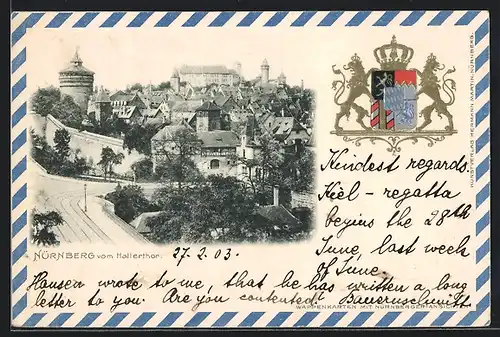 KUNSTVERLAG HERMANN MARTIN, NÜRNBERG.
Kindest regards.
Kiel - regatta
begins the 28th
June, last week
of June.
NÜRNBERG vom Hallerthor.
27. 2. 03.
Hansen wrote to me, that he has written a long
letter to you. Are you contented? Bauernschmitt
WAPPENKARTEN MIT NÜRNBERGER ANSICHTEN